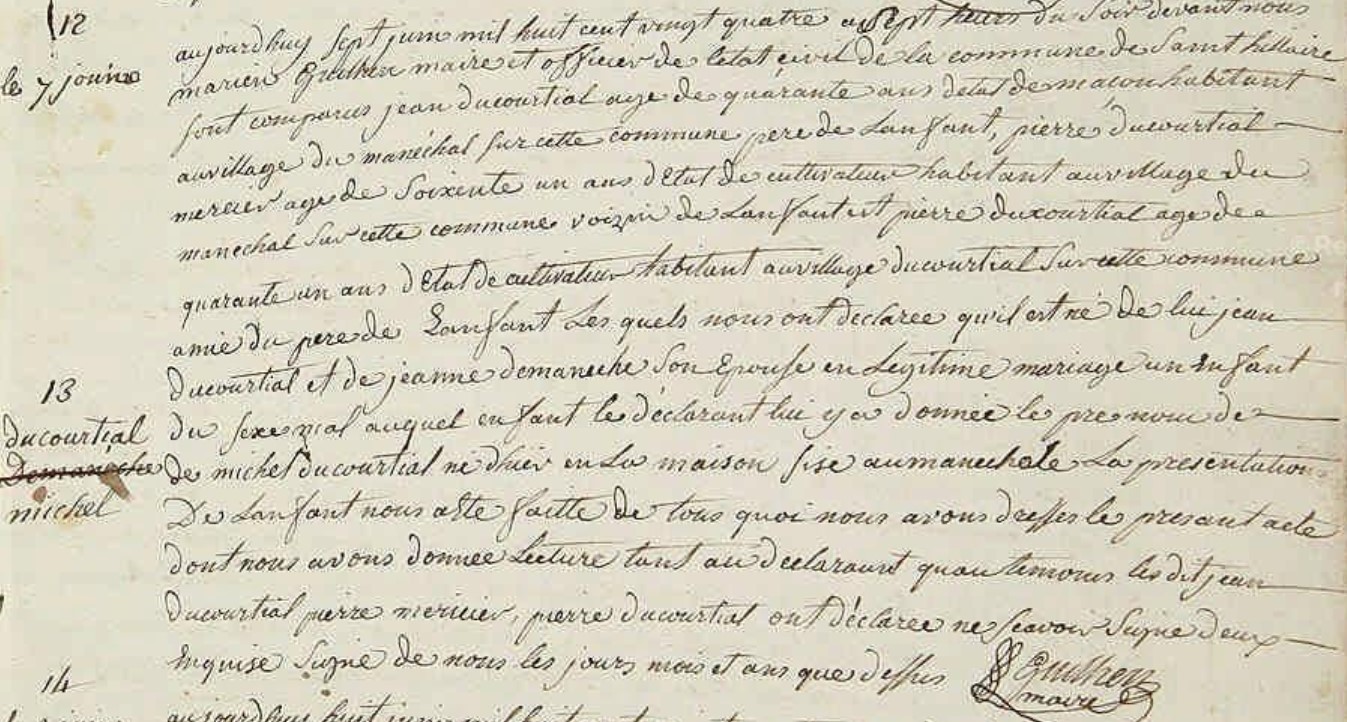 12
le 7 jouin
aujourdhuy sept juin mil huit cent vingt quatre a sept heurs du soir devant nous
marien Guilhen maire et officier de letat civil de la commune de Saint hillaire
sont comparus jean ducourtial age de quarante ans detat de macon habitant
au village du manéchal sur cette commune pere de Lanfant, pierre ducourtial
mercier age de soixente un ans d'Etat de cultivateur habitant au village du
manechal sur cette commune voizin de Lanfant et pierre ducourtial age de
quarante un ans d'Etat de cultivateur habitant au village ducourtial sur cette commune
amie du pere de Lanfant Les quels nous ont declaree qu'il est né de lui jean
ducourtial et de jeanne demaneche son Epouse en Legitime mariage un enfant
du sexe mal auquel enfant le déclarant lui y a donnée le pre nom de
de michel ducourtial né dhier en La maison sise au manechale La presentation
De Lanfant nous a Ete faitte de tous quoi nous avons dresser le presant acte
dont nous avons donnée Lecture tant au declarant quau temoins les dit jean
ducourtial pierre mericier, pierre ducourtial ont déclaree ne scavoir signe deux
Enquise Signe de nous les jours mois et ans que dessus
Guilhen
maire
13
ducourtial
Demaneche
michel
14
aujourdhuy huit juin mil huit